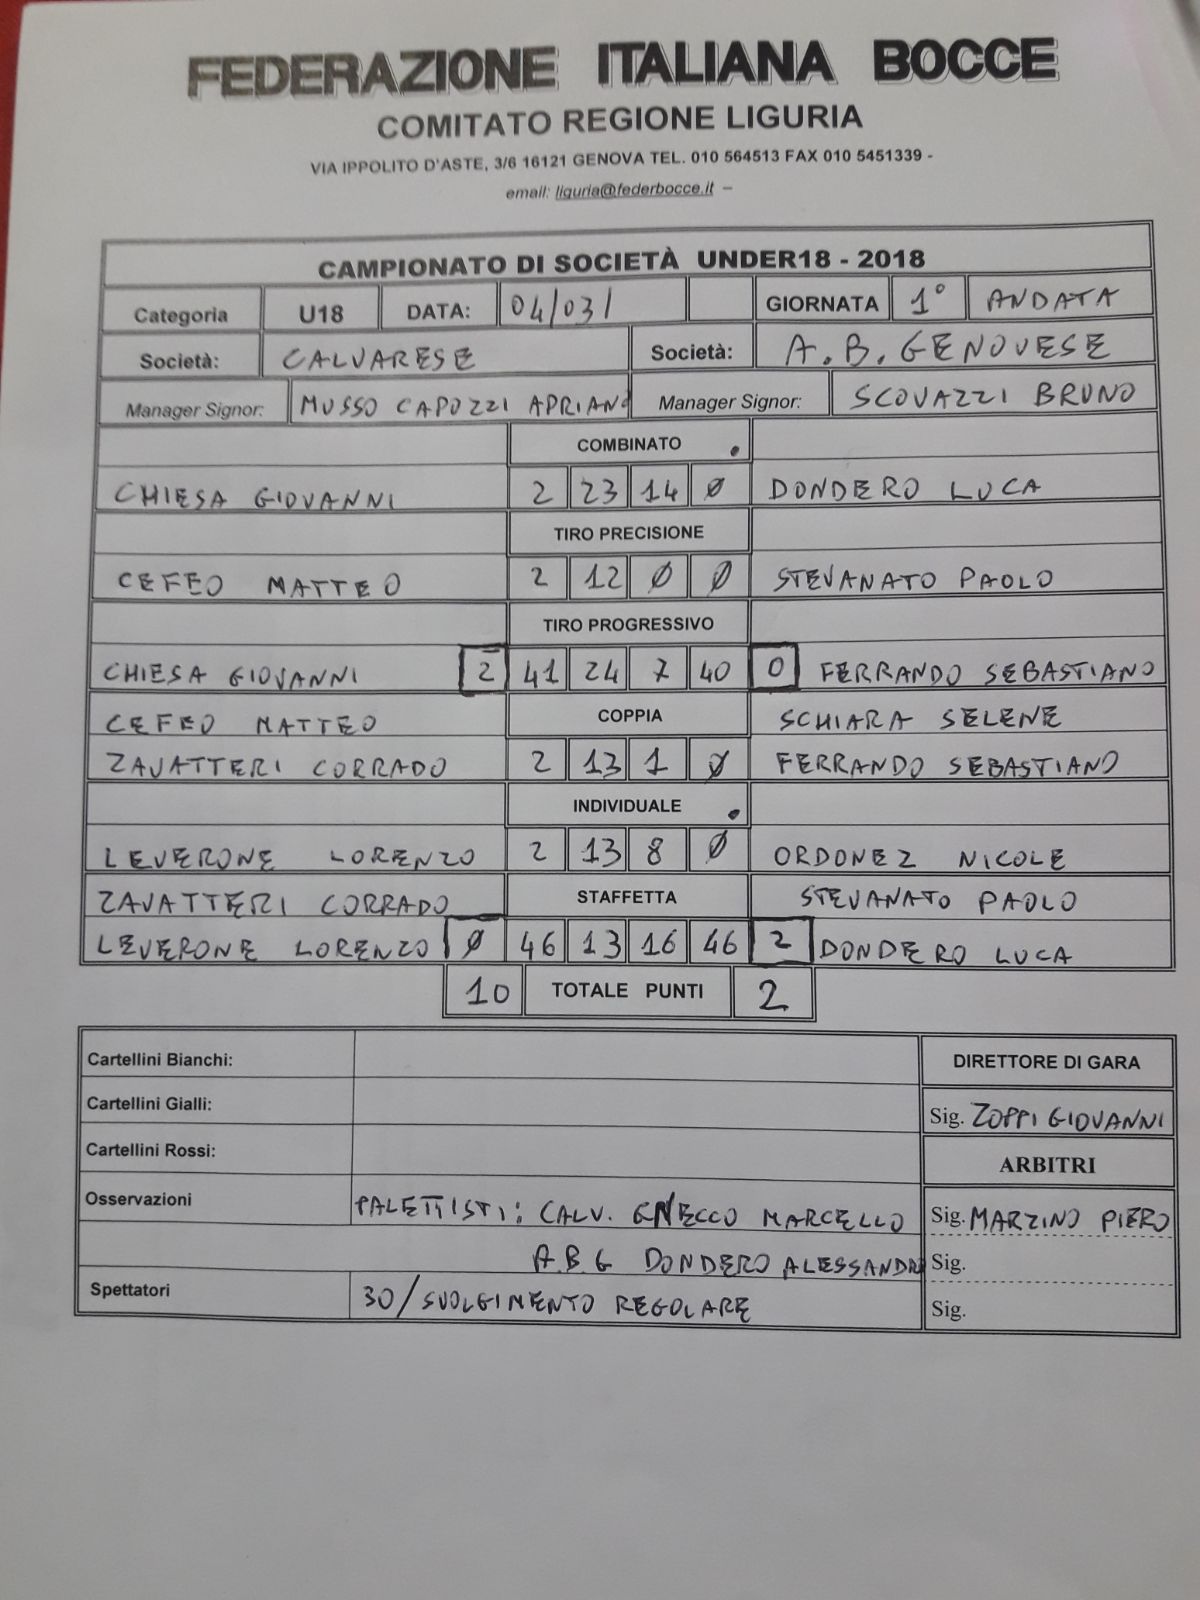 FEDERAZIONE ITALIANA BOCCE
COMITATO REGIONE LIGURIA
VIA IPPOLITO D'ASTE, 3/6 16121 GENOVA TEL. 010 564513 FAX 010 5451339 -
email: liguria@federbocce.it –
CAMPIONATO DI SOCIETÀ UNDER18 - 2018
Categoria U18 DATA: 04/03/ GIORNATA 1° ANDATA
Società: CALVARESE Società: A.B. GENOVESE
Manager Signor: MUSSO CAPOZZI APRIANO Manager Signor: SCOVAZZI BRUNO
COMBINATO
CHIESA GIOVANNI 2 23 14 0 DONDERO LUCA
TIRO PRECISIONE
CEFEO MATTEO 2 12 0 0 STEVANATO PAOLO
TIRO PROGRESSIVO
CHIESA GIOVANNI 2 41 24 7 40 0 FERRANDO SEBASTIANO
CEFEO MATTEO COPPIA SCHIARA SELENE
ZAVATTERI CORRADO 2 13 1 0 FERRANDO SEBASTIANO
INDIVIDUALE
LEVERONE LORENZO 2 13 8 0 ORDONEZ NICOLE
ZAVATTERI CORRADO STAFFETTA STEVANATO PAOLO
LEVERONE LORENZO 0 46 13 16 46 2 DONDERO LUCA
10 TOTALE PUNTI 2
Cartellini Bianchi: DIRETTORE DI GARA
Cartellini Gialli: Sig. ZOPPI GIOVANNI
Cartellini Rossi: ARBITRI
Osservazioni PALETTISTI: CALV. GNECCO MARCELLO Sig. MARZINO PIERO
A.B.G DONDERO ALESSANDRO Sig.
Spettatori 30/SVOLGIMENTO REGOLARE Sig.